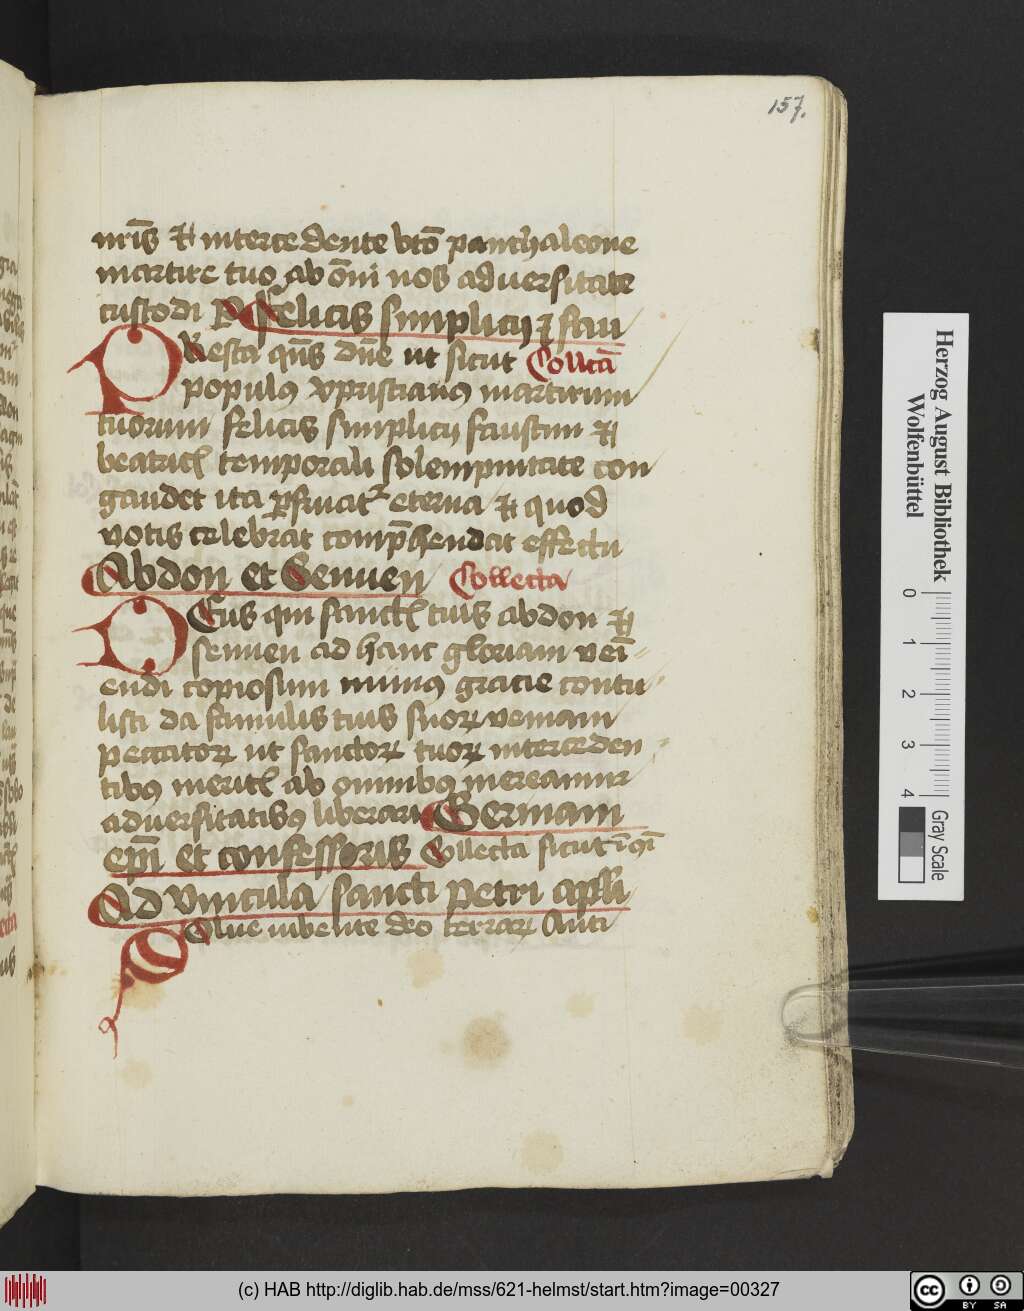 157.
nr̄is et intercedente bt̄o panthaleone
martire tuo ab om̄i nos aduersitate
custodi R Felicis simplicij et fau
PResta qs̄ dn̄e ut sicut Collcā
populus xpristianus martirum
tuorum felicis simplicij faustini et
beatricis temporali solempnitate con
gaudet ita perfruatur eterna et quod
votis celebrat comprehendat effectu
Abdon et Sennen Collecta
DEus qui sanctis tuis abdon et
sennen ad hanc gloriam veī
endi copiosum munus gracie contu
listi da famulis tuis suorum veniam
peccatorum ut sanctorum tuorum interceden
tibus meritis ab omnibus mereamur
aduersitatibus liberari Germani
epi et confessoris Collecta sicut
Ad vincula sancti Petri apli
SOlue iubente deo terrarum Anti
Herzog August Bibliothek
Wolfenbüttel
0 1 2 3 4
Gray Scale
(c) HAB http://diglib.hab.de/mss/621-helmst/start.htm?image=00327
cc BY SA